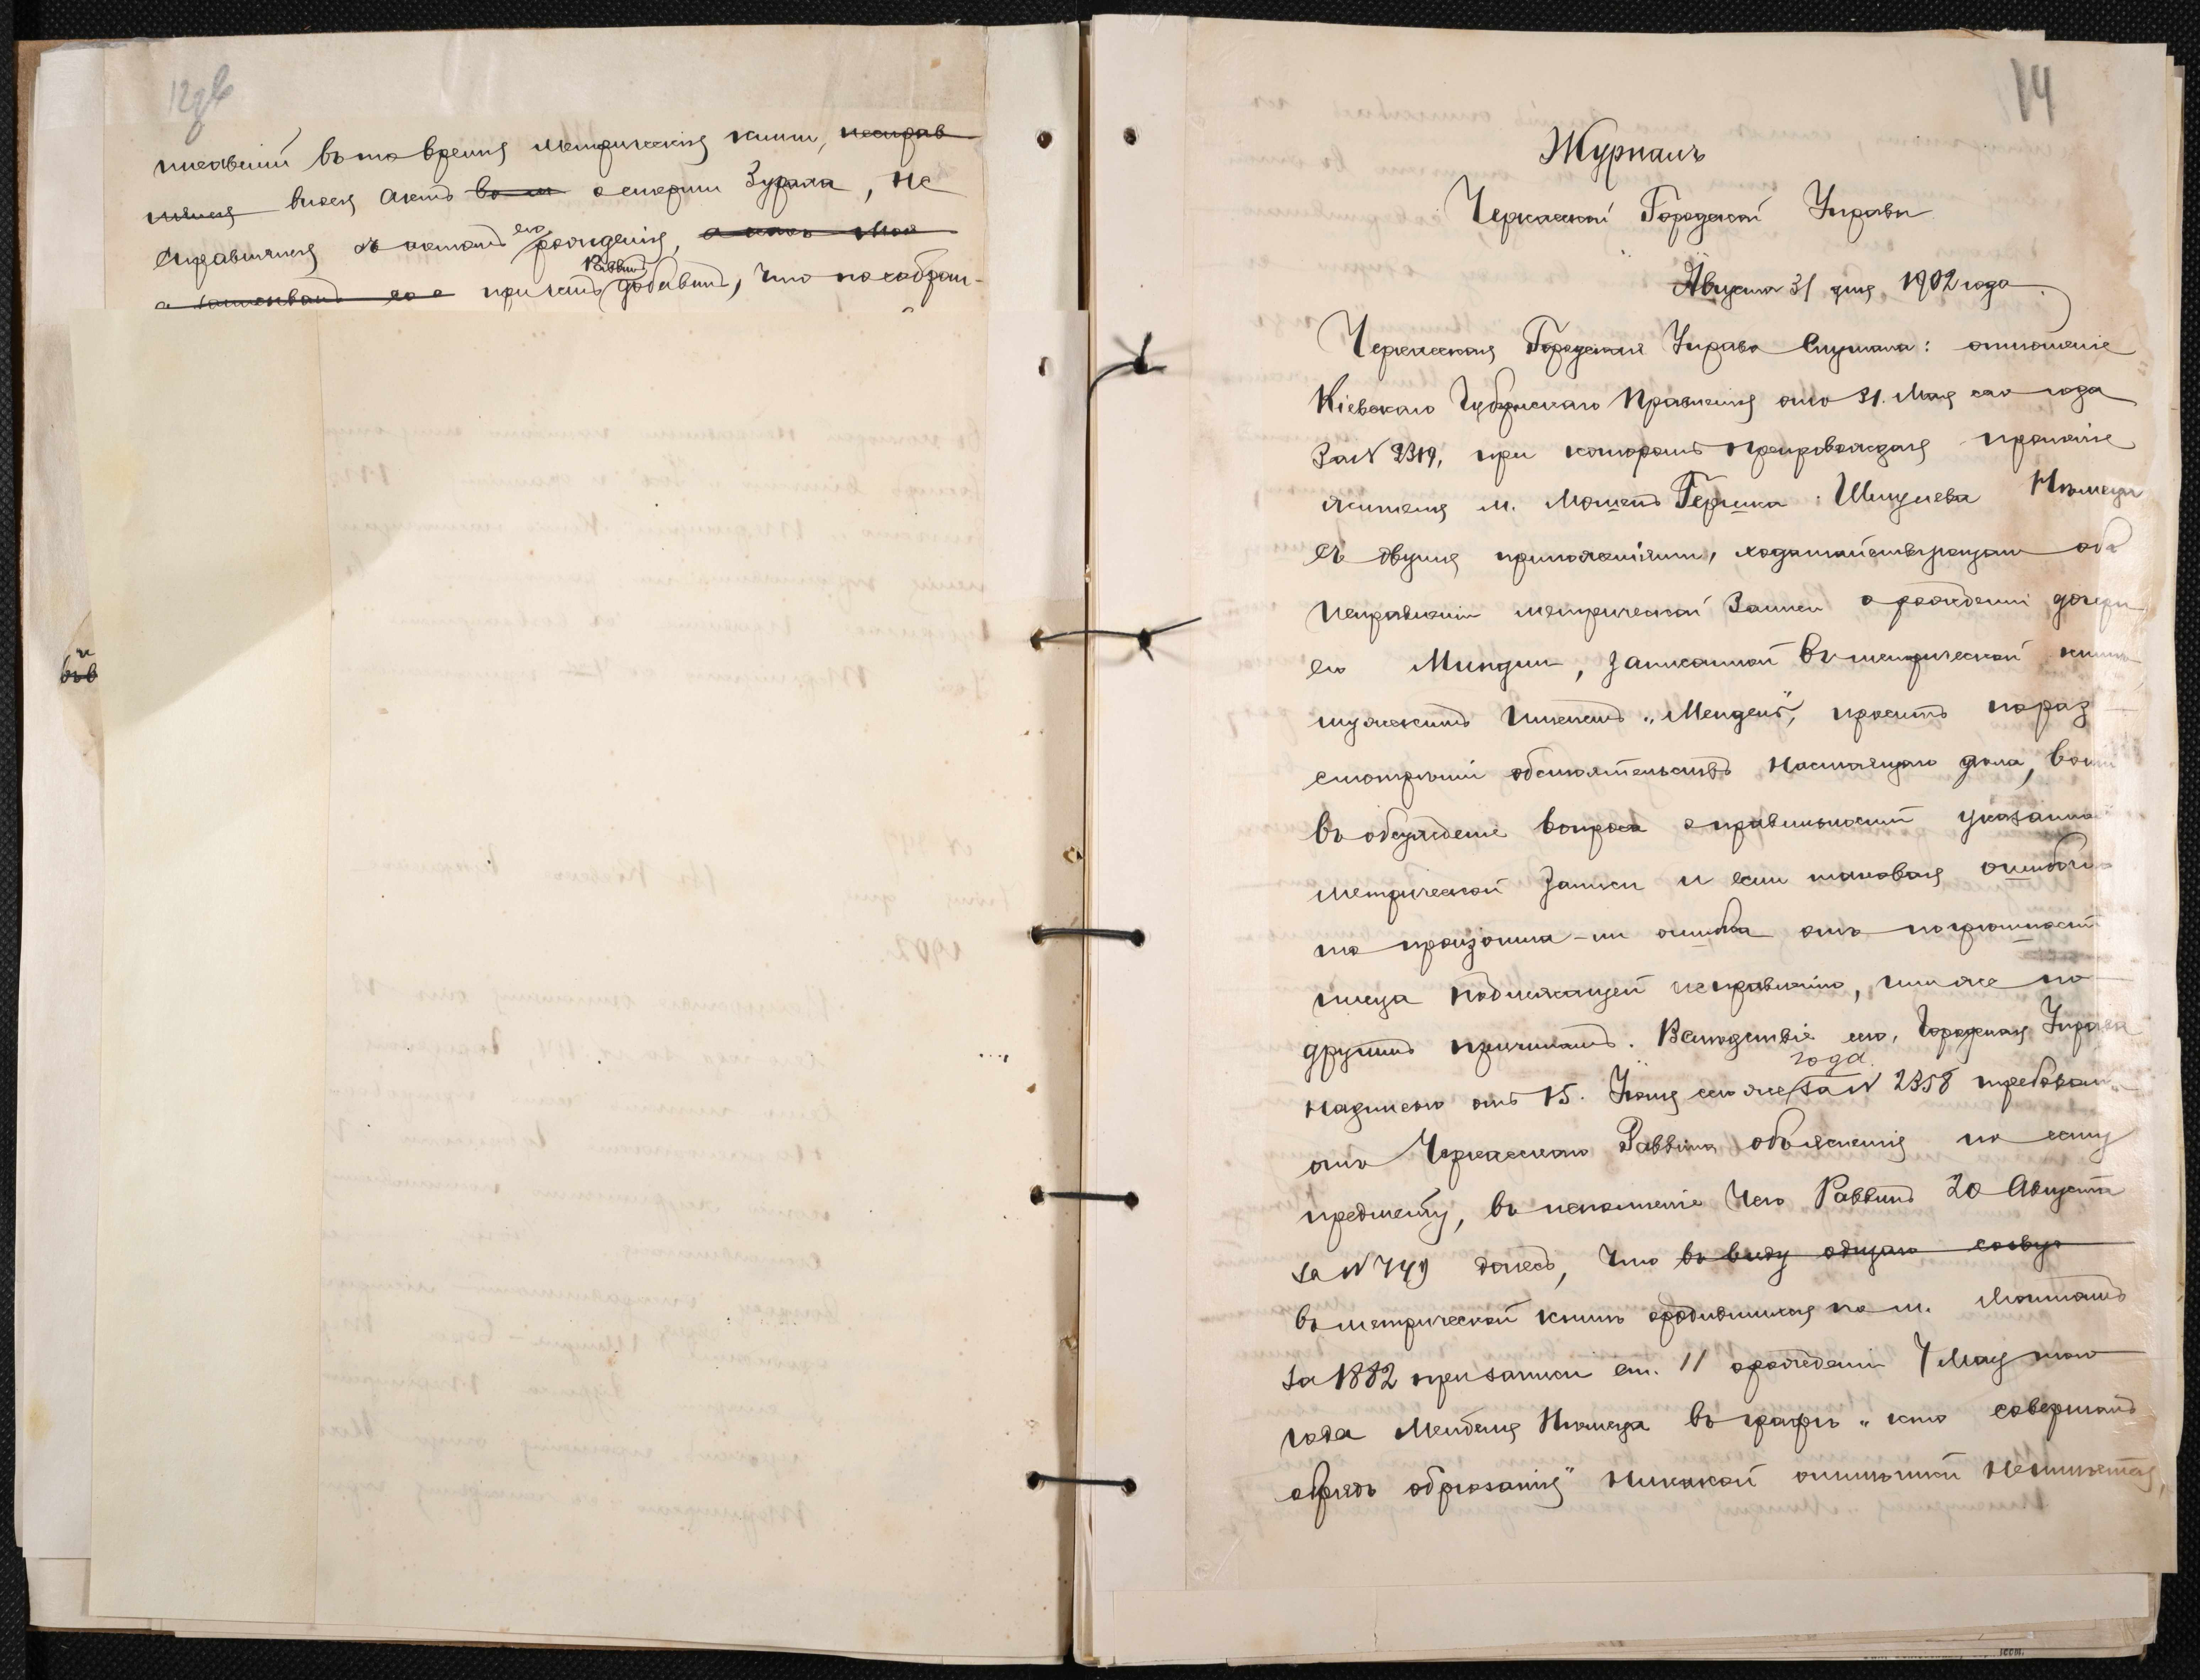 12 об
писавший въ то время метрическія книги, неправ
внося актъ о смерти Зурала, не
справился съ актомъ его рожденія,
а причемъ Раввинъ добавилъ, что по собран-
14
Журналъ
Черкасской Городской Управы
Августа 31 дня 1902 года
Черкасская Городская Управа Слушала: отношеніе
Кіевскаго Губернскаго Правленія отъ 31. Мая сего года
За № 2319, при которомъ препровождая прошеніе
жителя м. Мошенъ Гершка Шмулева Нѣмеца
съ двумя приложеніями, ходатайствующаго объ
исправленіи метрической записи о рожденіи дочери
его Миндли, записанной въ метрической книгѣ
мужскимъ именемъ „Мендель", проситъ по раз
смотрѣніи обстоятельствъ настоящаго дѣла, войти
въ обсужденіе вопроса о правильности указанной
метрической записи и если таковая ошибочна
то произошла-ли ошибка отъ погрѣшности
писца подлежащей исправленію, или же по
другимъ причинамъ. Вслѣдствіе сего, Городская Управа
надписью отъ 15. Іюня сего же года за № 2358 требовала
отъ Черкасскаго Раввина объясненія по сему
предмету, въ исполненіе чего Раввинъ 20 Августа
за № 749 донесъ, что въ виду общаго
въ метрической книгѣ о родившихся по м. Мошнамъ
за 1882 при записи ст. 11 о рожденіи 7 Мая того
года Менделя Нѣмеца въ графѣ „кто совершалъ
обрядъ обрѣзанія" никакой отмѣтки не имѣется,